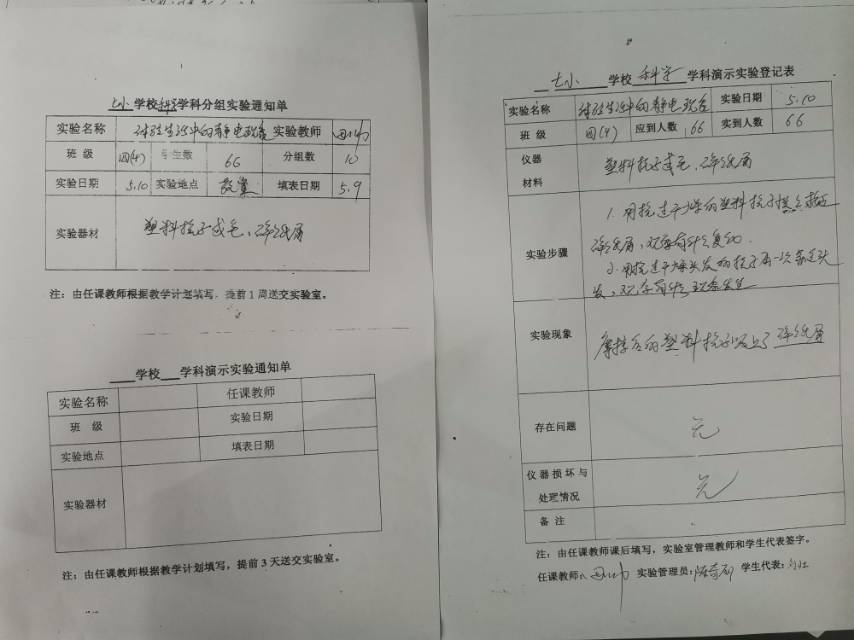 七小 学校 科学 学科分组实验通知单
实验名称 体验生活中的静电现象 实验教师
班 级 四(4) 学生数 66 分组数 10
实验日期 5.10 实验地点 教室 填表日期 5.9
实验器材 塑料梳子或毛、碎纸屑
注：由任课教师根据教学计划填写，提前1周送交实验室。
学校 学科演示实验通知单
实验名称 任课教师
班 级 实验日期
实验地点 填表日期
实验器材
注：由任课教师根据教学计划填写，提前3天送交实验室。
七小 学校 科学 学科演示实验登记表
实验名称 体验生活中的静电现象 实验日期 5.10
班 级 四(4) 应到人数 66 实到人数 66
仪器
材料
塑料梳子或毛、碎纸屑
实验步骤
1.用梳过干燥的塑料梳子慢慢接近
碎纸屑，观察有什么变化.
2.用梳过干燥头发的梳子再一次靠近头
发，观察有什么现象发生
实验现象 摩擦后的塑料梳子吸上了碎纸屑
存在问题 无
仪器损坏与
处理情况
无
备 注
注：由任课教师课后填写，实验室管理教师和学生代表签字。
任课教师： 实验管理员： 学生代表：